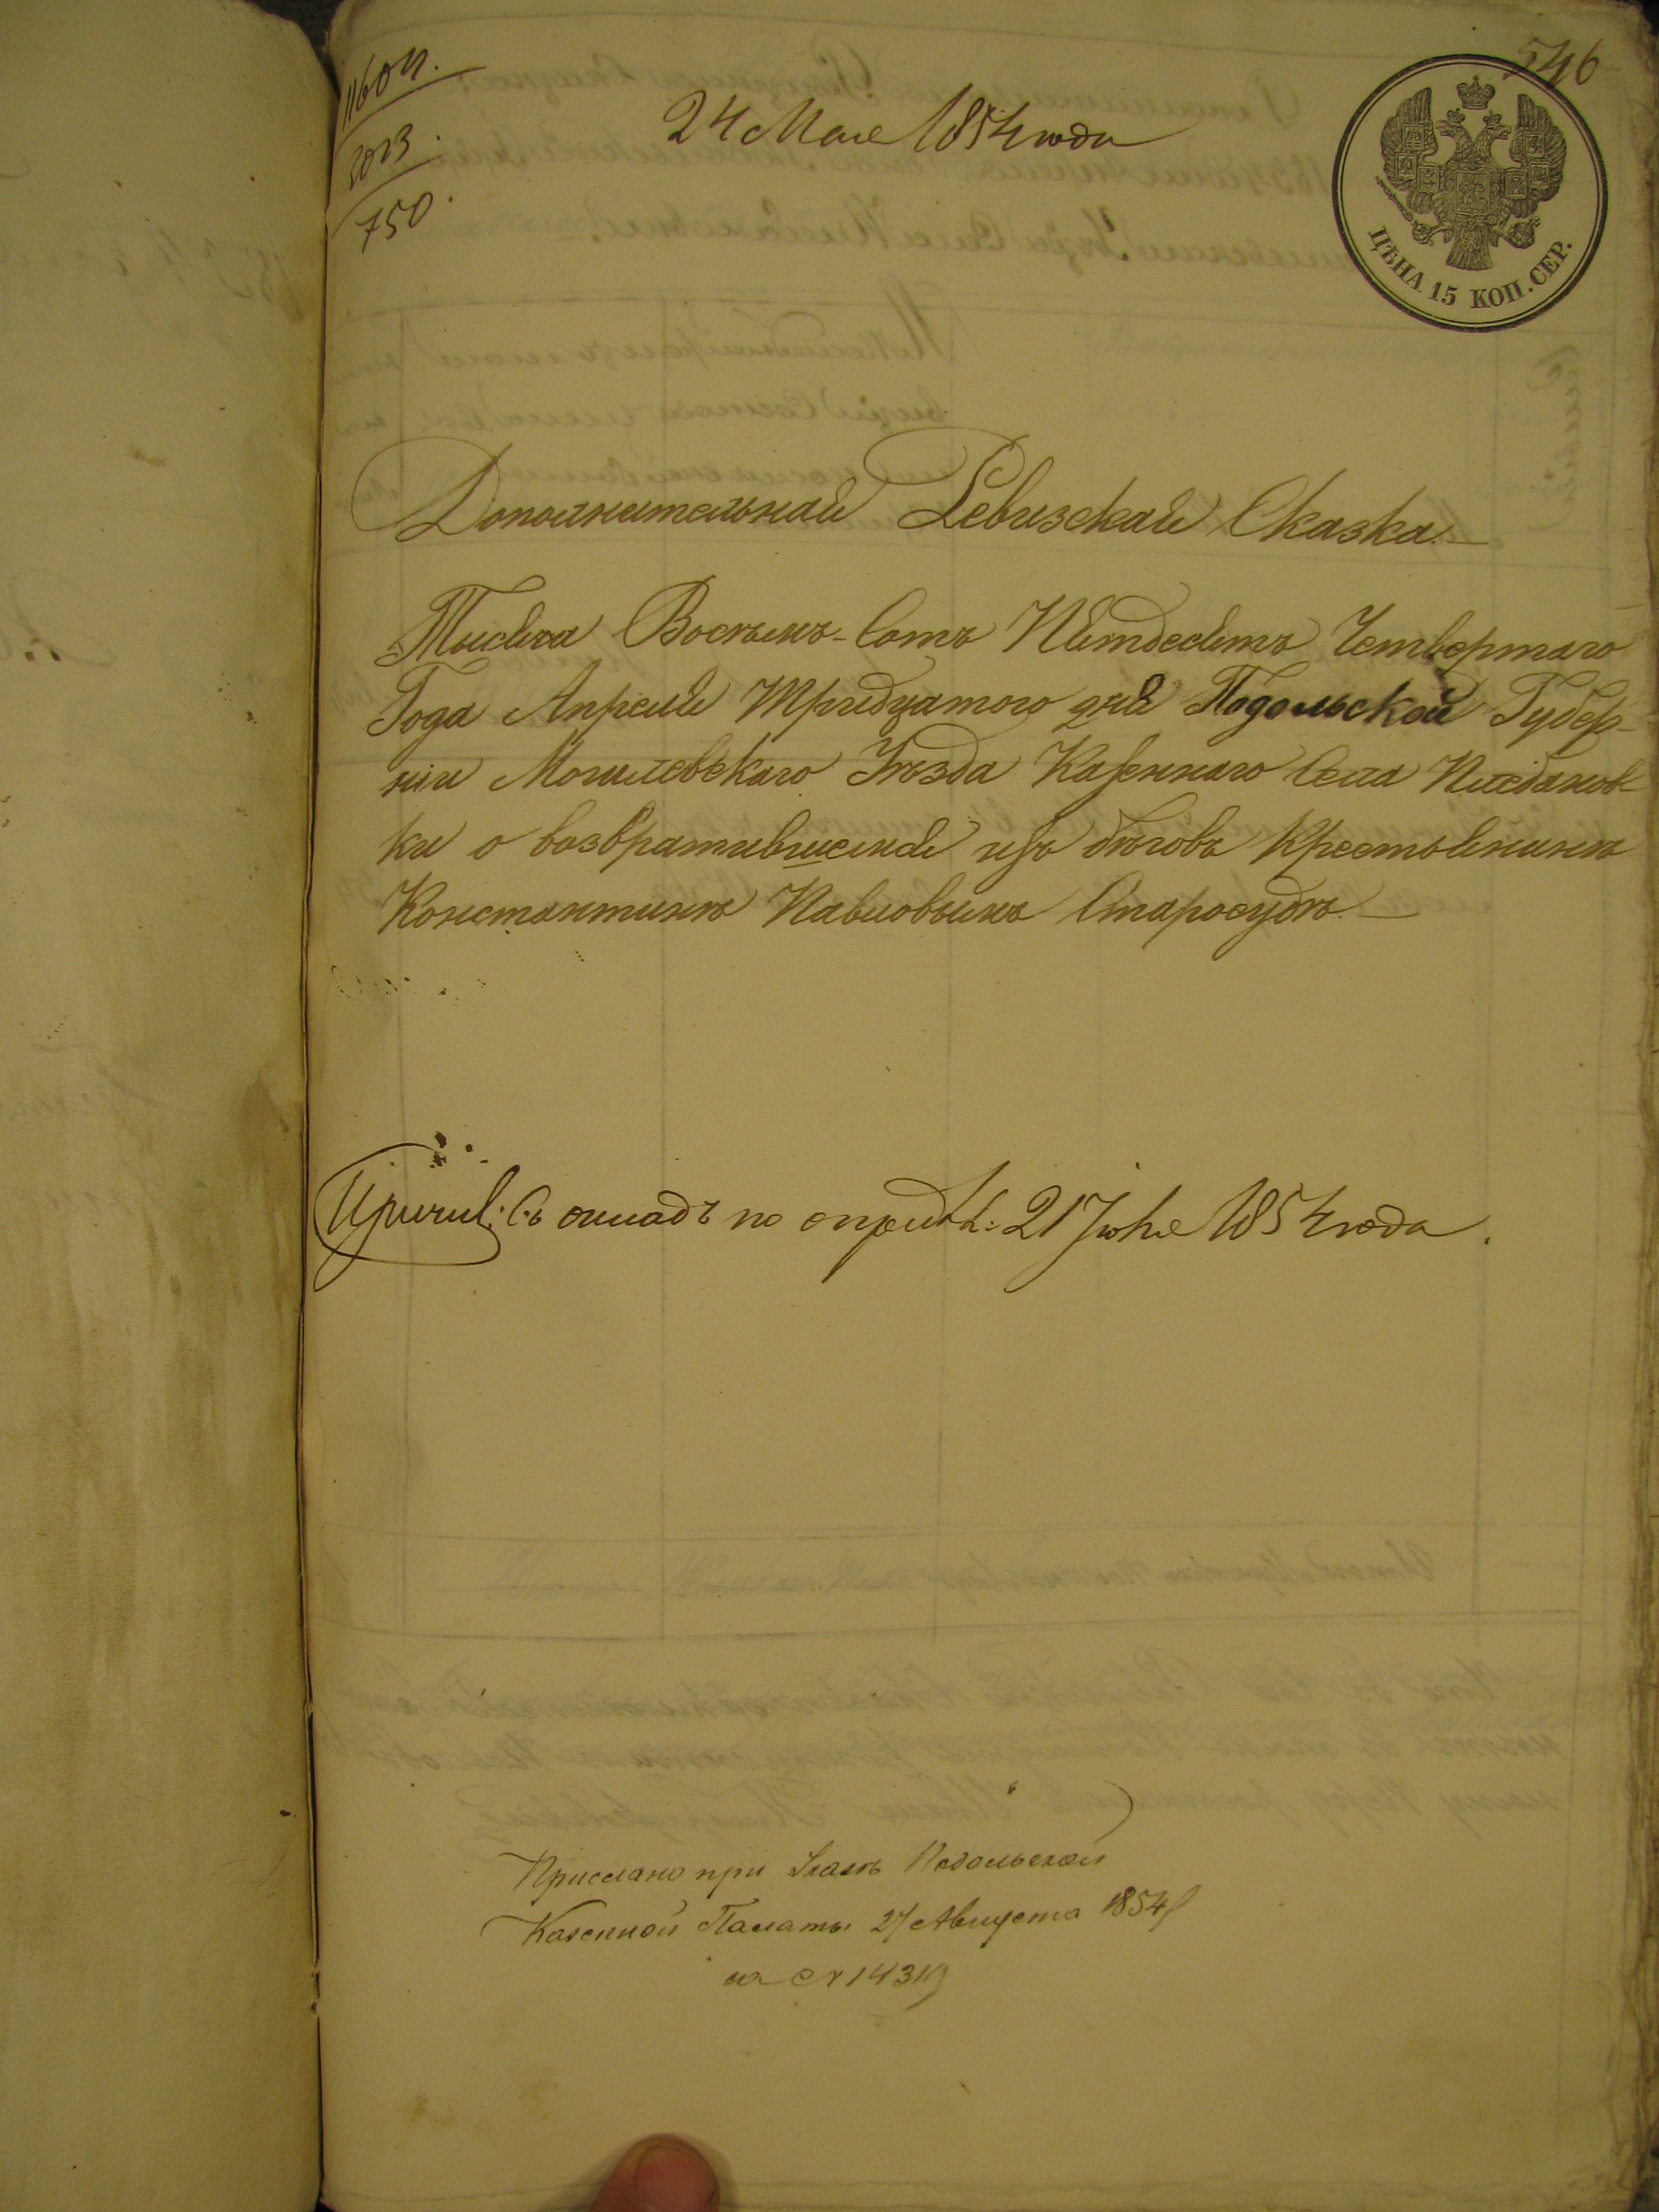 546
1160 п.
2013.
750.
24 Мая 1854 года
ЦѢНА 15 КОП. СЕР.
Дополнительная Ревизская Сказка
Тысяча Восемь-Сотъ Пятдесятъ Четвертаго
Года Апреля Тридцатого дня Подольской Губер-
ніи Могилевскаго Уѣзда Казеннаго Села Плебанов-
ки о возвратившемся изъ бѣговъ Крестьянинѣ
Константинѣ Павловымъ Старосудѣ
Причисл: съ окладъ по опредѣл: 21 Іюня 1854 года.
Прислано при Указѣ Подольской
Казенной Палаты 27 Августа 1854
за №